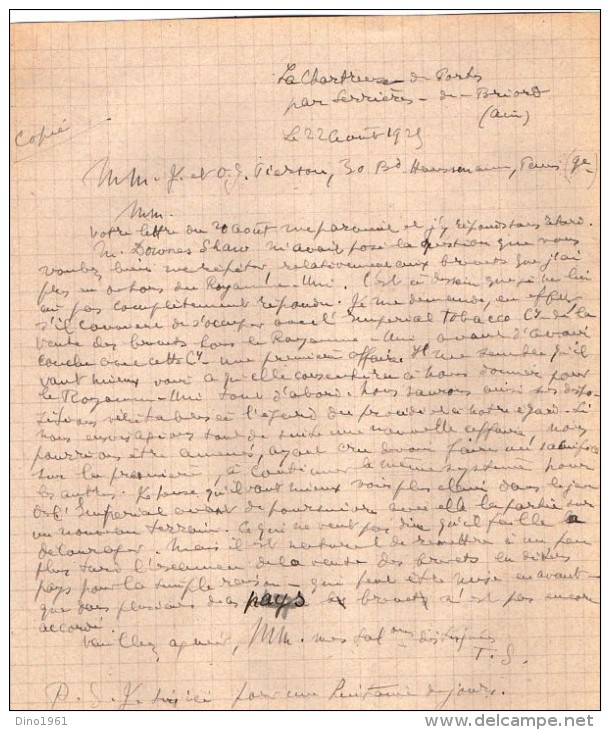 La Chartreuse de Portes
par Serrières-de-Briord
(Ain)
Copié
Le 22 Août 1925
MM. J. et O. G. Pierson, 30 Bd Haussmann, Paris (9e)
MM.
Votre lettre du 20 août me parvient et j'y réponds sans retard.
M. Downes Shaw m'avait posé la question que vous
voulez bien me répéter relativement aux brevets que j'ai
pris en dehors du Royaume-Uni. C'est à dessein que je ne lui
ai pas complètement répondu. Je me demande, en effet,
s'il convient de s'occuper avec l'Imperial Tobacco Cy de la
vente des brevets hors le Royaume-Uni avant d'avoir
conclu avec cette Cy une première affaire. Il me semble qu'il
vaut mieux voir à quelle consentira à nous donner pour
le Royaume-Uni tout d'abord. Nous saurons ainsi ses dispo-
sitions véritables à l'égard du procédé et à notre égard. Si
nous envisagions tout de suite une nouvelle affaire, nous
pourrions être amenés, ayant cru devoir faire un sacrifice
sur la première, à continuer le même système pour
les autres. Je pense qu'il vaut mieux voir plus clair dans le jeu
de l'Imperial avant de poursuivre avec elle la partie sur
un nouveau terrain. Ce qui ne veut pas dire qu'il faille la
décourager. Mais il est naturel de remettre à un peu
plus tard l'examen de la vente des brevets en divers
pays pour la simple raison - qui peut être mise en avant -
que dans plusieurs de ces pays le brevet n'est pas encore
accordé
Veuillez agréer, MM. mes salons distinguées
T. S.
P. S. Je suis ici pour une huitaine de jours.
Dino1961